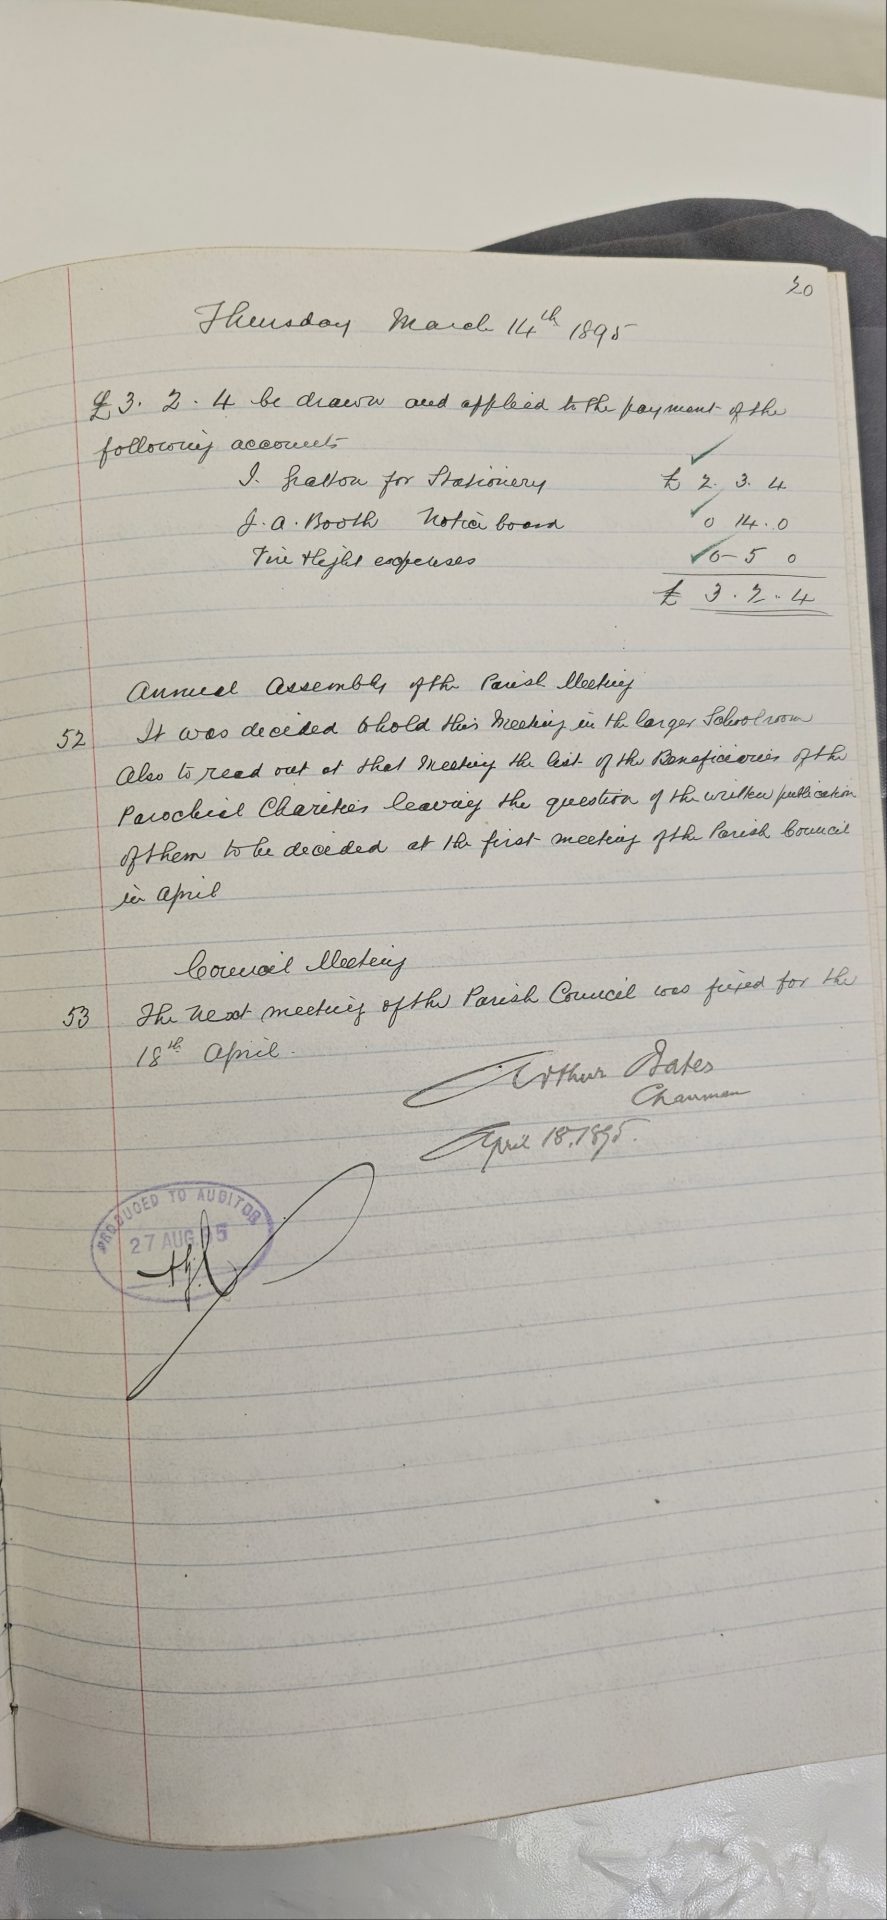 20
Thursday March 14th 1895
£3. 2. 4 be drawn and applied to the payment of the
following accounts
I. Gratton for Stationery £ 2. 3. 4
J. A. Booth Notice board 0 14. 0
Fire & light expenses 0 - 5 0
£ 3. 2. 4
Annual Assembly of the Parish Meeting
52 It was decided to hold this Meeting in the larger Schoolroom
Also to read out at that Meeting the list of the Beneficiaries of the
Parochial Charities leaving the question of the written publication
of them to be decided at the first meeting of the Parish Council
in April
Council Meeting
53 The next meeting of the Parish Council was fixed for the
18th April.
Arthur Bates
Chairman
April 18. 1895.
PRODUCED TO AUDITOR
27 AUG. 95